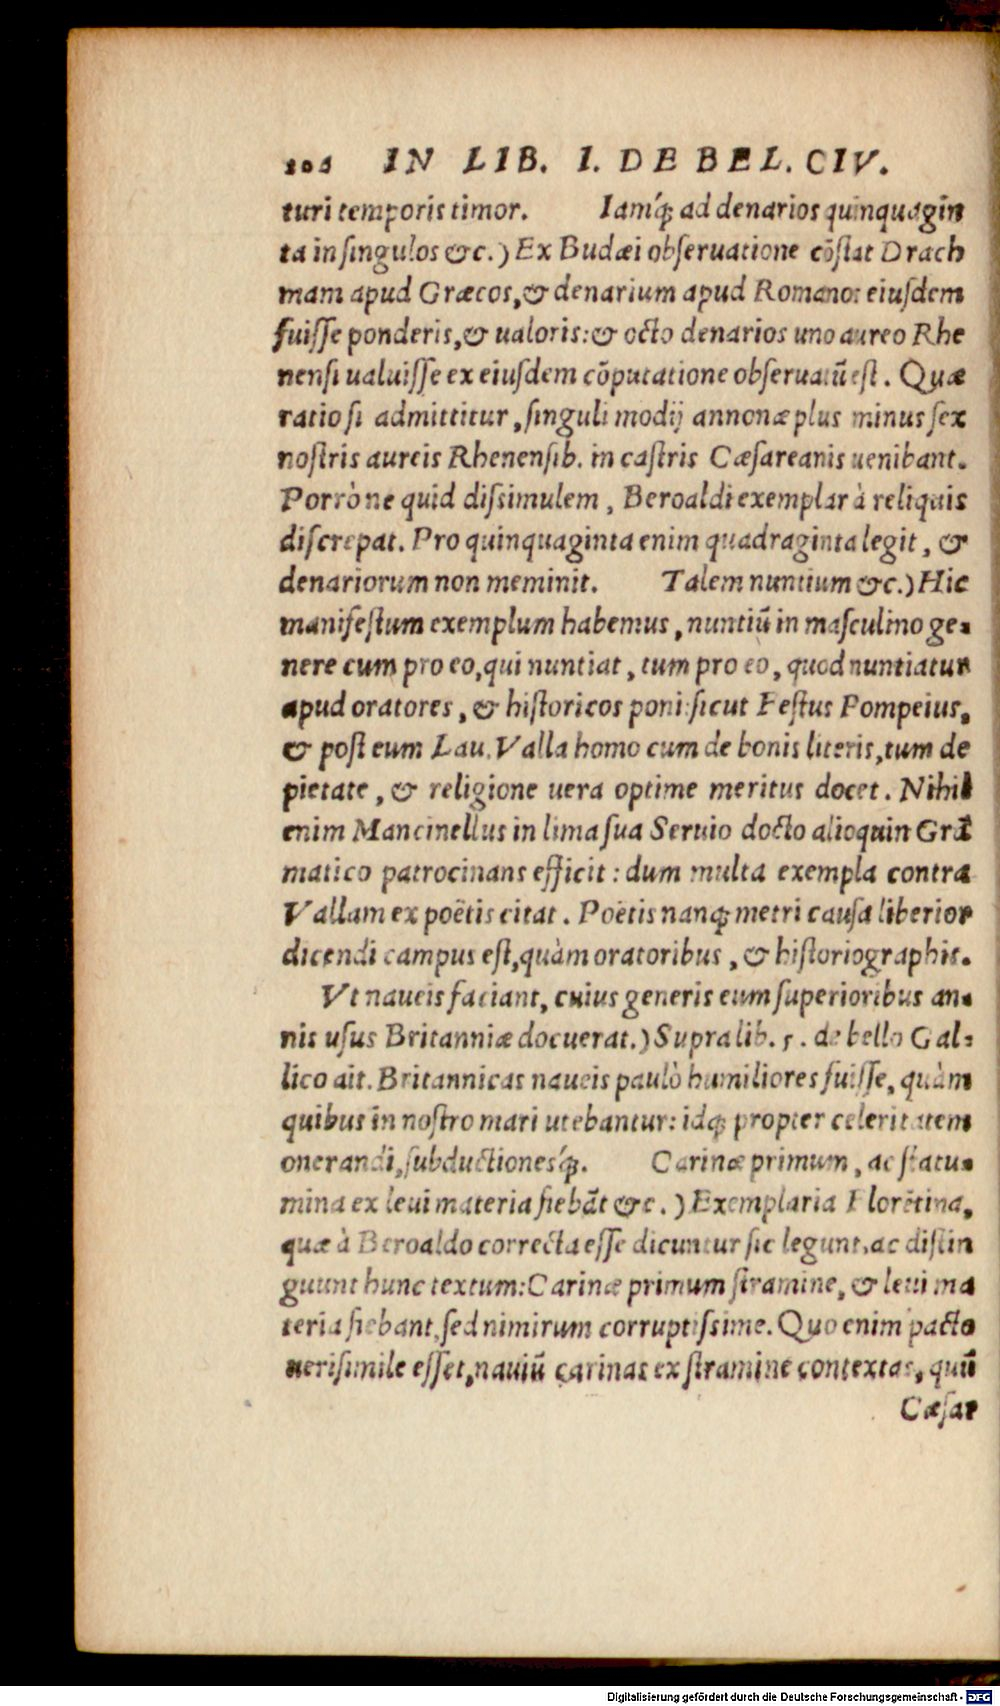 106 IN LIB. I. DE BEL. CIV.
turi temporis timor. Iamq́ꝫ ad denarios quinquagin
ta in ſingulos &c.) Ex Budæi obſeruatione cōſtat Drach
mam apud Græcos, & denarium apud Romanos eiuſdem
fuiſſe ponderis, & ualoris: & octo denarios uno aureo Rhe
nenſi ualuiſſe ex eiuſdem cōputatione obſeruatū eſt. Quæ
ratio ſi admittitur, ſinguli modij annonæ plus minus ſex
noſtris aureis Rhenenſib. in caſtris Cæſareanis uenibant.
Porrò ne quid diſsimulem, Beroaldi exemplar à reliquis
diſcrepat. Pro quinquaginta enim quadraginta legit, &
denariorum non meminit. Talem nuntium &c.) Hic
manifeſtum exemplum habemus, nuntiū in maſculino ge-
nere cum pro eo, qui nuntiat, tum pro eo, quod nuntiatur
apud oratores, & hiſtoricos poni: ſicut Feſtus Pompeius,
& poſt eum Lau. Valla homo cum de bonis literis, tum de
pietate, & religione uera optime meritus docet. Nihil
enim Mancinellus in lima ſua Seruio docto alioquin Grā
matico patrocinans efficit: dum multa exempla contra
Vallam ex poëtis citat. Poëtis nanqꝫ metri cauſa liberior
dicendi campus eſt, quàm oratoribus, & hiſtoriographis.
Vt naueis faciant, cuius generis eum ſuperioribus an-
nis uſus Britanniæ docuerat.) Supra lib. 5. de bello Gal-
lico ait. Britannicas naueis paulò humiliores fuiſſe, quàm
quibus in noſtro mari utebantur: idqꝫ propter celeritatem
onerandi, ſubductionesq́ꝫ. Carinæ primum, ac ſtatu-
mina ex leui materia fiebāt &c.) Exemplaria Florētina,
quæ à Beroaldo correcta eſſe dicuntur ſic legunt, ac diſtin
guunt hunc textum: Carinæ primum ſtramine, & leui ma
teria fiebant, ſed nimirum corruptiſsime. Quo enim pacto
ueriſimile eſſet, nauiū carinas ex ſtramine contextas, quū
Cæſar
Digitalisierung gefördert durch die Deutsche Forschungsgemeinschaft - DFG